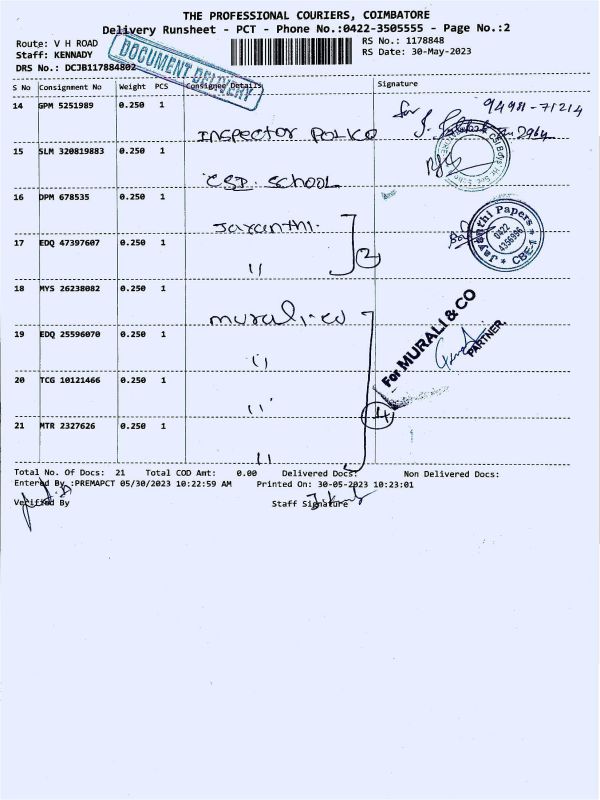 THE PROFESSIONAL COURIERS, COIMBATORE
Delivery Runsheet - PCT - Phone No.:0422-3505555 - Page No.:2
Route: V H ROAD RS No.: 1178848
Staff: KENNADY RS Date: 30-May-2023
DRS No.: DCJB117884802
DOCUMENT DELIVERY
S No Consignment No Weight PCS Consignee Details Signature
14 GPM 5251989 0.250 1
INSPECTOR POLICE for 94981-71214
15 SLM 320819883 0.250 1
CSI. SCHOOL
16 DPM 678535 0.250 1
Jayanthi.
17 EDQ 47397607 0.250 1
" 2
Jayanthi Papers * CBE-1 *
0422
4356996
18 MYS 26238082 0.250 1
murali-co
For MURALI & CO
PARTNER.
19 EDQ 25596070 0.250 1
"
20 TCG 10121466 0.250 1
"
21 MTR 2327626 0.250 1
" 4
Total No. Of Docs: 21 Total COD Amt: 0.00 Delivered Docs: Non Delivered Docs:
Entered By :PREMAPCT 05/30/2023 10:22:59 AM Printed On: 30-05-2023 10:23:01
Verified By Staff Signature